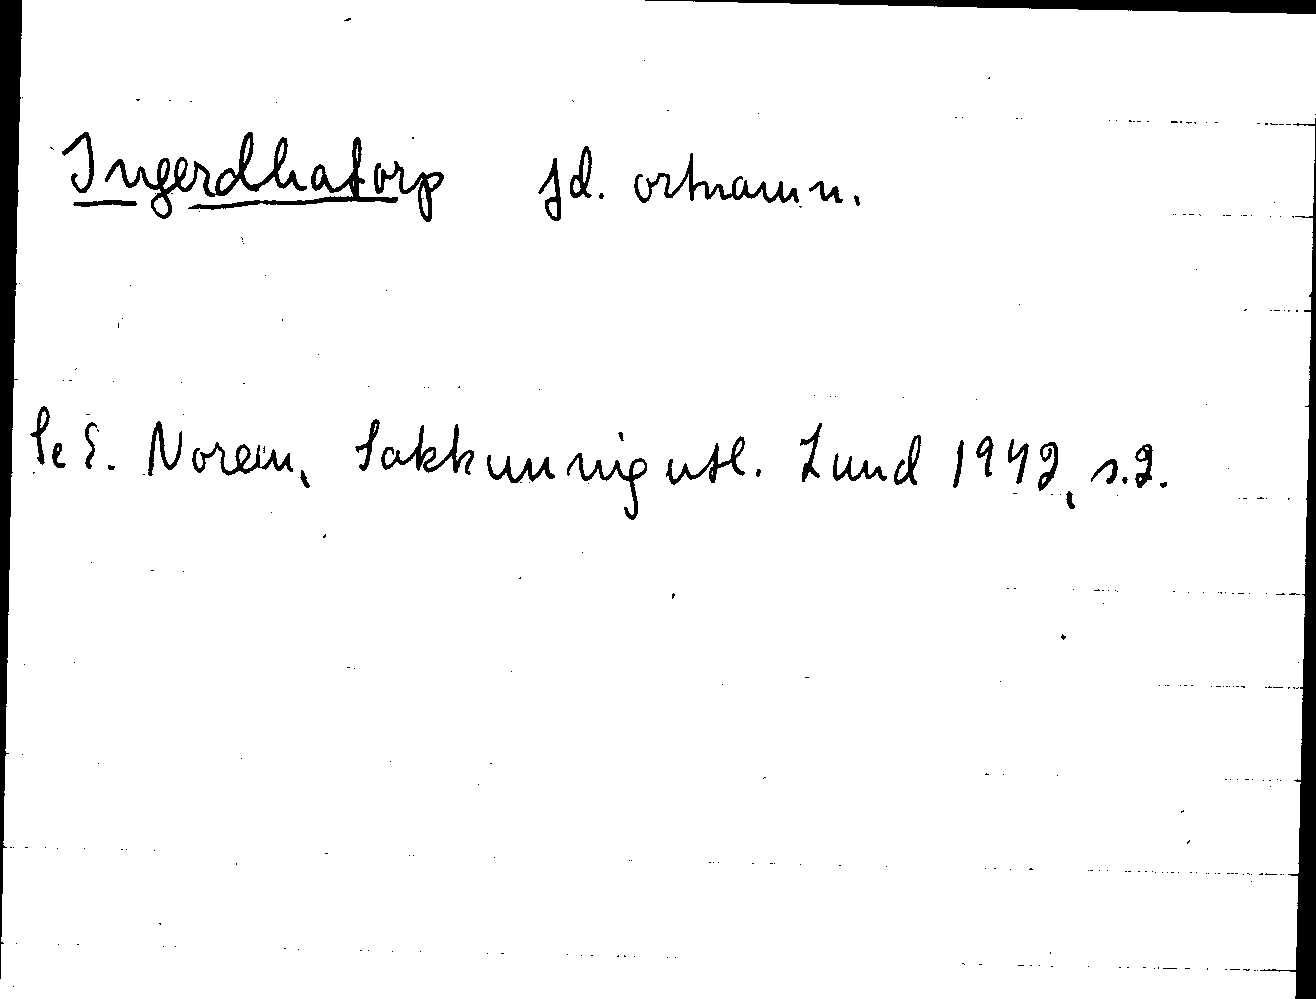 Ingerdhatorp fd. ortnamn.
Se E. Noreen, Sakkunnigutl. Lund 1942, s.2.